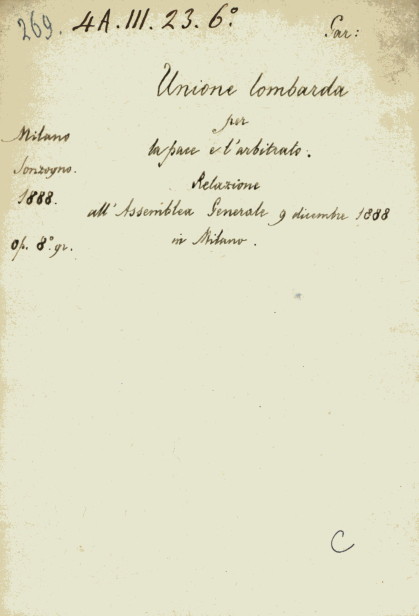 269. 4A.III.23.6°
Gar:
Unione lombarda
per
la pace e l'arbitrato.
Relazione
all'Assemblea Generale 9 dicembre 1888
in Milano.
Milano
Sonzogno.
1888.
op. 8.° gr.
C